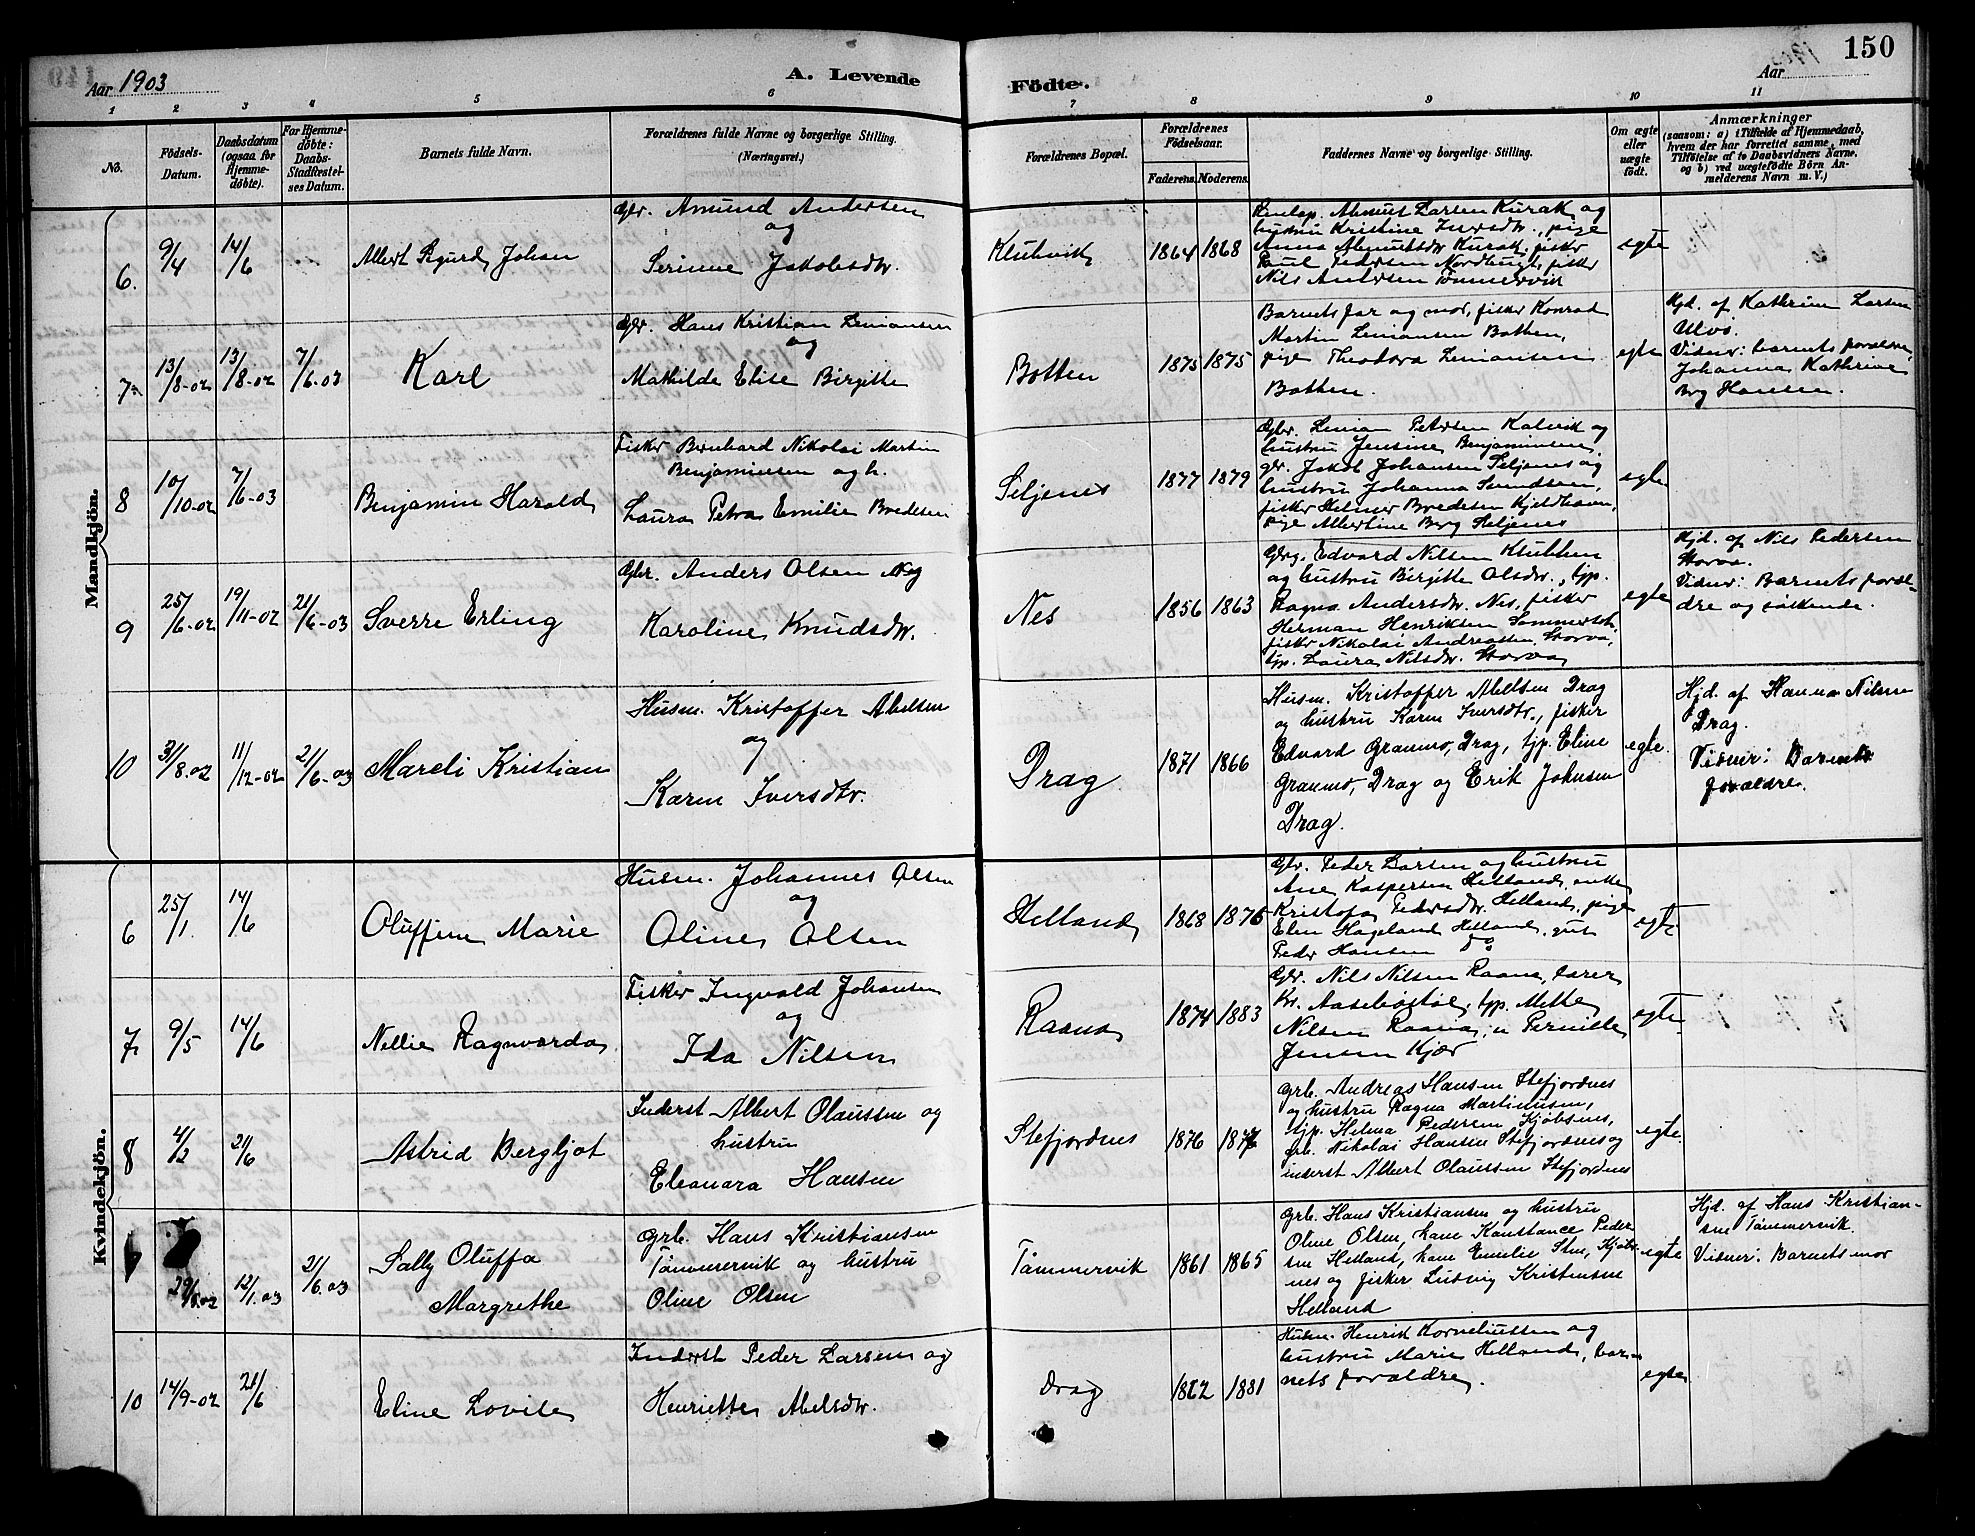 150
Aar 1903
A. Levende
Födte.
Aar
1
2
3
4
5
6
7
8
9
10
11
No.
Födsels-
Datum.
Daabsdatum
(ogsaa for
Hjemme-
döbte).
For Hjemme-
döbte:
Daabs-
Stadfæstel-
ses Datum.
Barnets fulde Navn.
Forældrenes fulde Navne og borgerlige Stilling.
(Næringsvei.)
Forældrenes Bopæl.
Forældrenes
Födselsaar.
Faderens.
Moderens.
Faddernes Navne og borgerlige Stilling.
Om ægte
eller
uægte
födt.
Anmærkninger
(saasom: a) i Tilfælde af Hjemmedaab,
hvem der har forrettet samme, med
Tilföielse af to Daabsvidners Navne,
og b) ved uægtefödte Börn An-
melderens Navn m. V.)
Mandkjön.
6.
9/4
14/6
Albert Sigurd Johan
Gbr. Amund Andersen
og
Serinne Jakobsdtr.
Klubvik
1864
1868
Larsen Kurak og
hustru Kristine Iversdtr., pige
Anna Kurak, fisker
Paul Pedersen fisker
Nils Andersen Tømmervik
egte
7
13/8-02
13/8-02
7/6-03
Karl
Gbr. Hans Kristian Zeniansen
og
Mathilde Elise Birgitte
Botten
1875
1875
Barnets far og mor, fisker Konrad
Martin Botten,
pige Theodora
Botten.
egte
Hjd. af Kathrine Larsen
Ulvø.
Vidner: barnets forældre,
Johanna Kathrine
Berg Hansen.
8
10/10-02
7/6-03
Benjamin Harald
Fisker Bernhard Nikolai Martin
Benjaminsen og h.
Laura Petra Emilie Bredesen
Seljenes
1877
1879
Gbr. Petersen Kalvik og
hustru Jensine Benjaminsen,
gbr. Jakob Johansen Seljenes og
hustru Johanna Svendsen,
fisker Helmer Bredesen
pige Albertine Berg Seljenes
egte
9
25/6-02
19/11-02
21/6-03
Sverre Erling
Gbr. Anders Olsen og
Karoline Knudsdtr.
Nes
1856
1863
Gbrg. Edvard Nilsen Klubben
og hustru Birgitte Olsdtr., tjp.
Ragna Andersdtr. Nes, fisker
Herman Henriksen
fisker Nikolai Andreassen Storvo,
tjp. Laura Nilsdtr. Storvo
egte
Hjd. af Nils Pedersen
Storvo.
Vidner: Barnets foræl-
dre og søskende.
10
31/8.02
11/12-02
21/6-03
Mareli Kristian
Husm. Kristoffer Abelsen
og
Karen Iversdtr.
Drag
1871
1866
Husm. Kristoffer Abelsen Drag
og hustru Karen Iversdtr., fisker
Edvard Granmo, Drag, tjp. Eline
Granmo, Drag og Erik Johnsen
Drag.
egte.
Hjd. af Hanna Nilsen
Drag.
Vidner: Barnets
forældre.
Kvindekjön.
6
25/1.
14/6
Oluffine Marie
Husm. Johannes Olsen
og
Oline Olsen
Helland
1868
1876
Gbr. Peder Larsen og hustru
Ane Kaspersen Helland, enke
Kristofa Pedersdtr. Helland, pige
Elen Hageland Helland, gut
Peder Hansen do
egte
7
9/5
14/6
Nellie Ragnvarda
Fisker Ingvald Johansen
og
Ida Nilsen
Raana
1874
1883
Gbr. Nils Nilsen Raana, lærer
Kr. Aasebøstøl, tjp. Mette
Nilsen Raana, " Pernille
Jensen Kjær
egte
8
4/2
21/6
Astrid Bergljot
Inderst Albert Olaussen og
hustru
Eleonora Hansen
Stefjordnes
1876
1877
grb. Andreas Hansen Stefjordnes
og hustru Ragna Martinusen,
tjp. Helena Pedersen Kjøbsnes,
grb. Nikolai Hansen Stefjordnes og
inderst Albert Olaussen Stefjordnes
egte.
29/8.02
12/1.03
21/6.03
Sally Oluffa
Margrethe
grb. Hans Kristiansen
Tømmervik og hustru
Oline Olsen
Tømmervik
1861
1865
grb. Hans Kristiansen og hustru
Oline Olsen, kone Konstance Peder-
sen Helland, kone Emelie Kjøbs-
nes og fisker Ludvig Kristensen
Helland
egte
Hjd. af Hans Kristian-
sen Tømmervik.
Vidner: Barnets mor
10
14/9-02
21/6
Eline Lovise
Inderst Peder Larsen og
Henriette Abelsdtr.
Drag
1862
1881
Husm. Henrik Korneliussen og
hustru Marie Helland, bar-
nets forældre.
egte